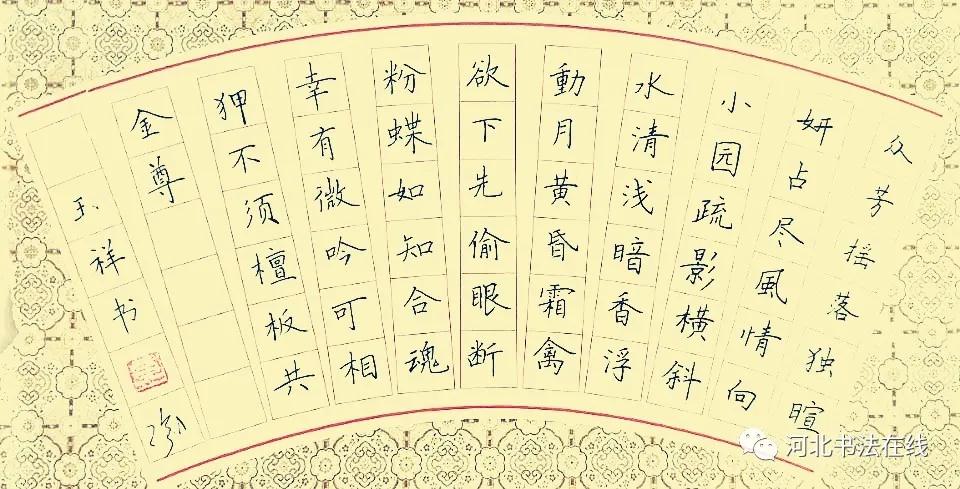 众芳摇落独暄
妍占尽風情向
小园疏影横斜
水清浅暗香浮
動月黄昏霜禽
欲下先偷眼断
粉蝶如知合魂
幸有微吟可相
狎不须檀板共
金尊
玉祥书
河北书法在线